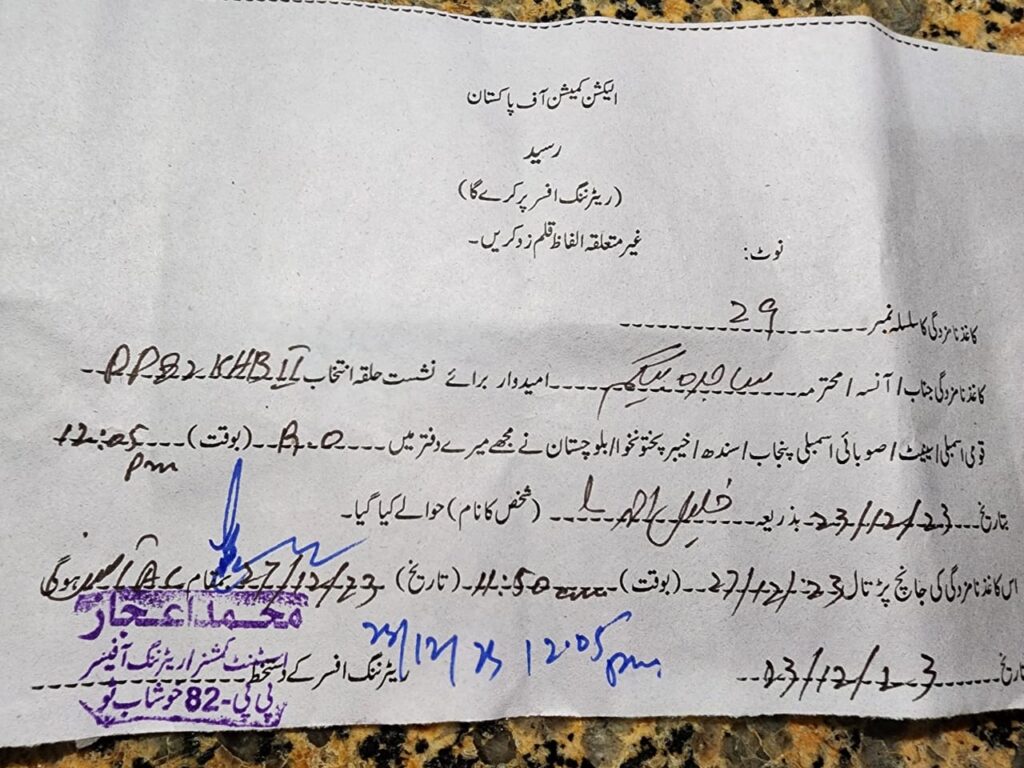 الیکشن کمیشن آف پاکستان
رسید
(ریٹرننگ افسر پر کرے گا)
نوٹ: غیر متعلقہ الفاظ قلم زد کریں۔
کاغذ نامزدگی کا سلسلہ نمبر 29
کاغذ نامزدگی جناب / آنسہ / محترمہ ساجدہ بیگم امیدوار برائے نشست حلقہ انتخاب PP82 KHB II
قومی اسمبلی / سینیٹ / صوبائی اسمبلی پنجاب / سندھ / خیبر پختونخوا / بلوچستان نے مجھے میرے دفتر میں R.O (بوقت) 12:05 pm
بتاریخ 23/12/23 بذریعہ (شخص کا نام) حوالے کیا گیا۔
اس کاغذ نامزدگی کی جانچ پڑتال 27/12/23 (بوقت) 11:50 (تاریخ) 27/12/23 بمقام AC ہوگی
تاریخ 23/12/23
23/12/23 12:05 pm
ریٹرننگ افسر کے دستخط
محمد اعجاز
اسسٹنٹ کمشنر / ریٹرننگ آفیسر
پی پی-82 خوشاب ٹو